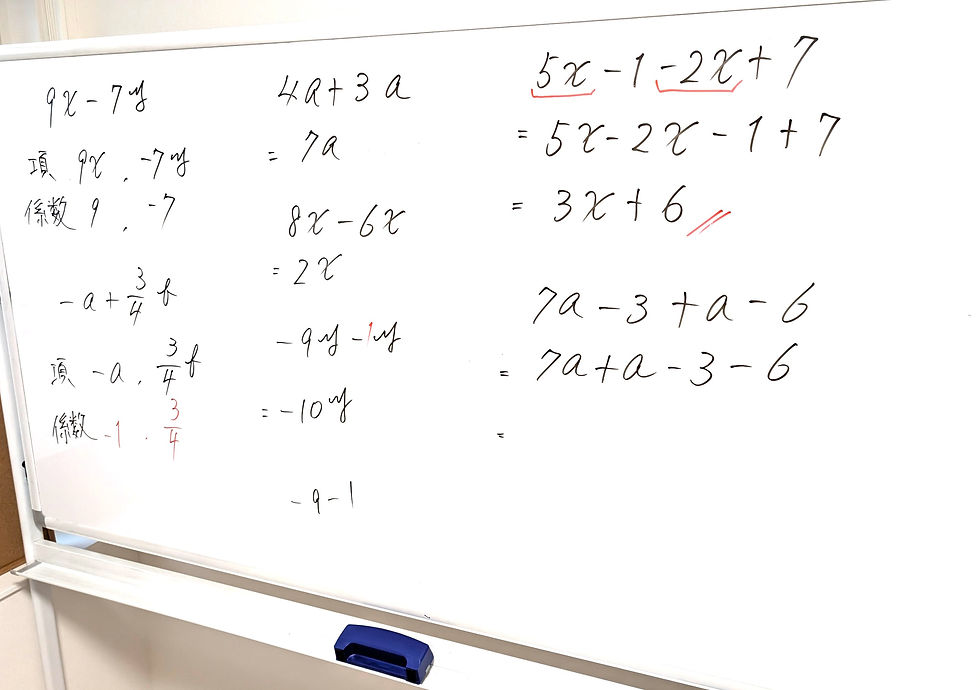 9x-7y
項 9x, -7y
係数 9, -7
-a+3/4 b
項 -a, 3/4 b
係数 -1, 3/4
4a+3a
= 7a
8x-6x
= 2x
-9y-1y
= -10y
-9-1
5x-1-2x+7
= 5x-2x-1+7
= 3x+6
7a-3+a-6
= 7a+a-3-6
=